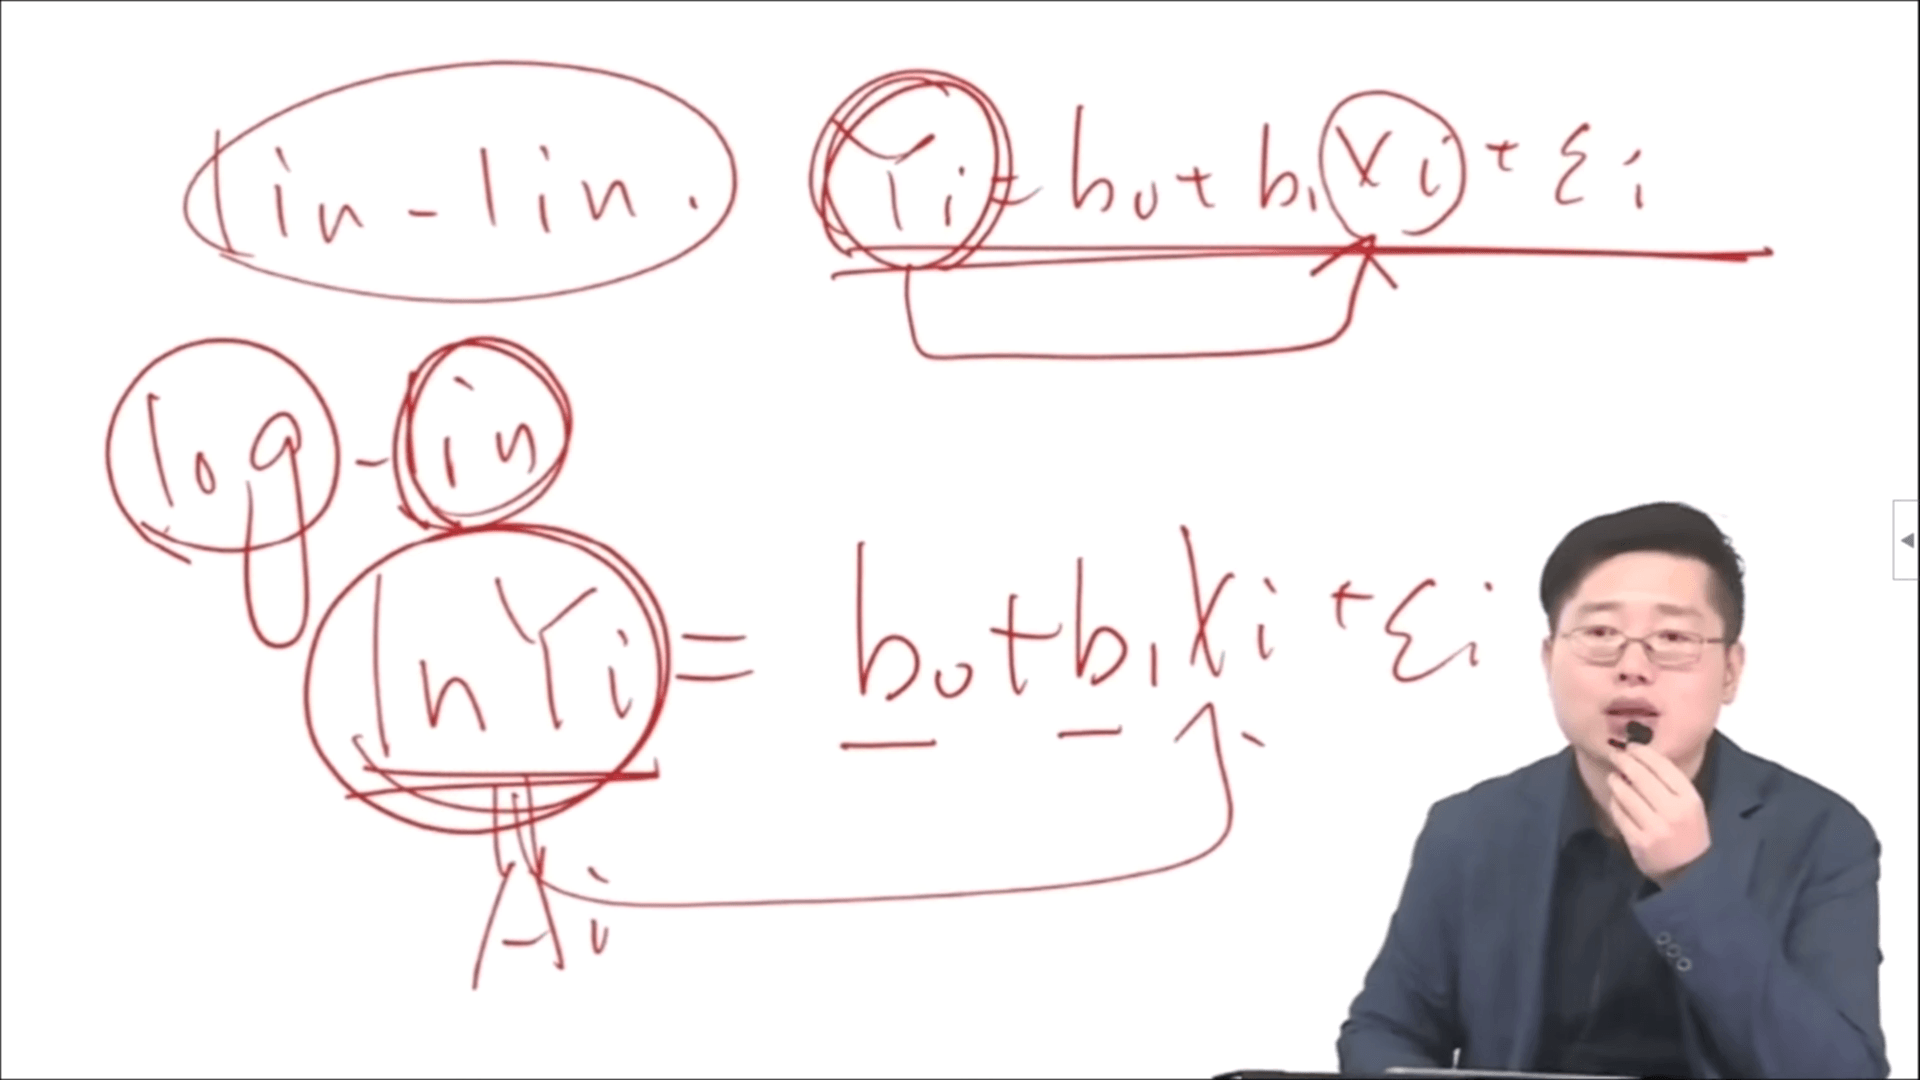 lin-lin. Yi = b0 + b1 Xi + εi
log - in
ln Yi = b0 + b1 Xi + εi
Ai